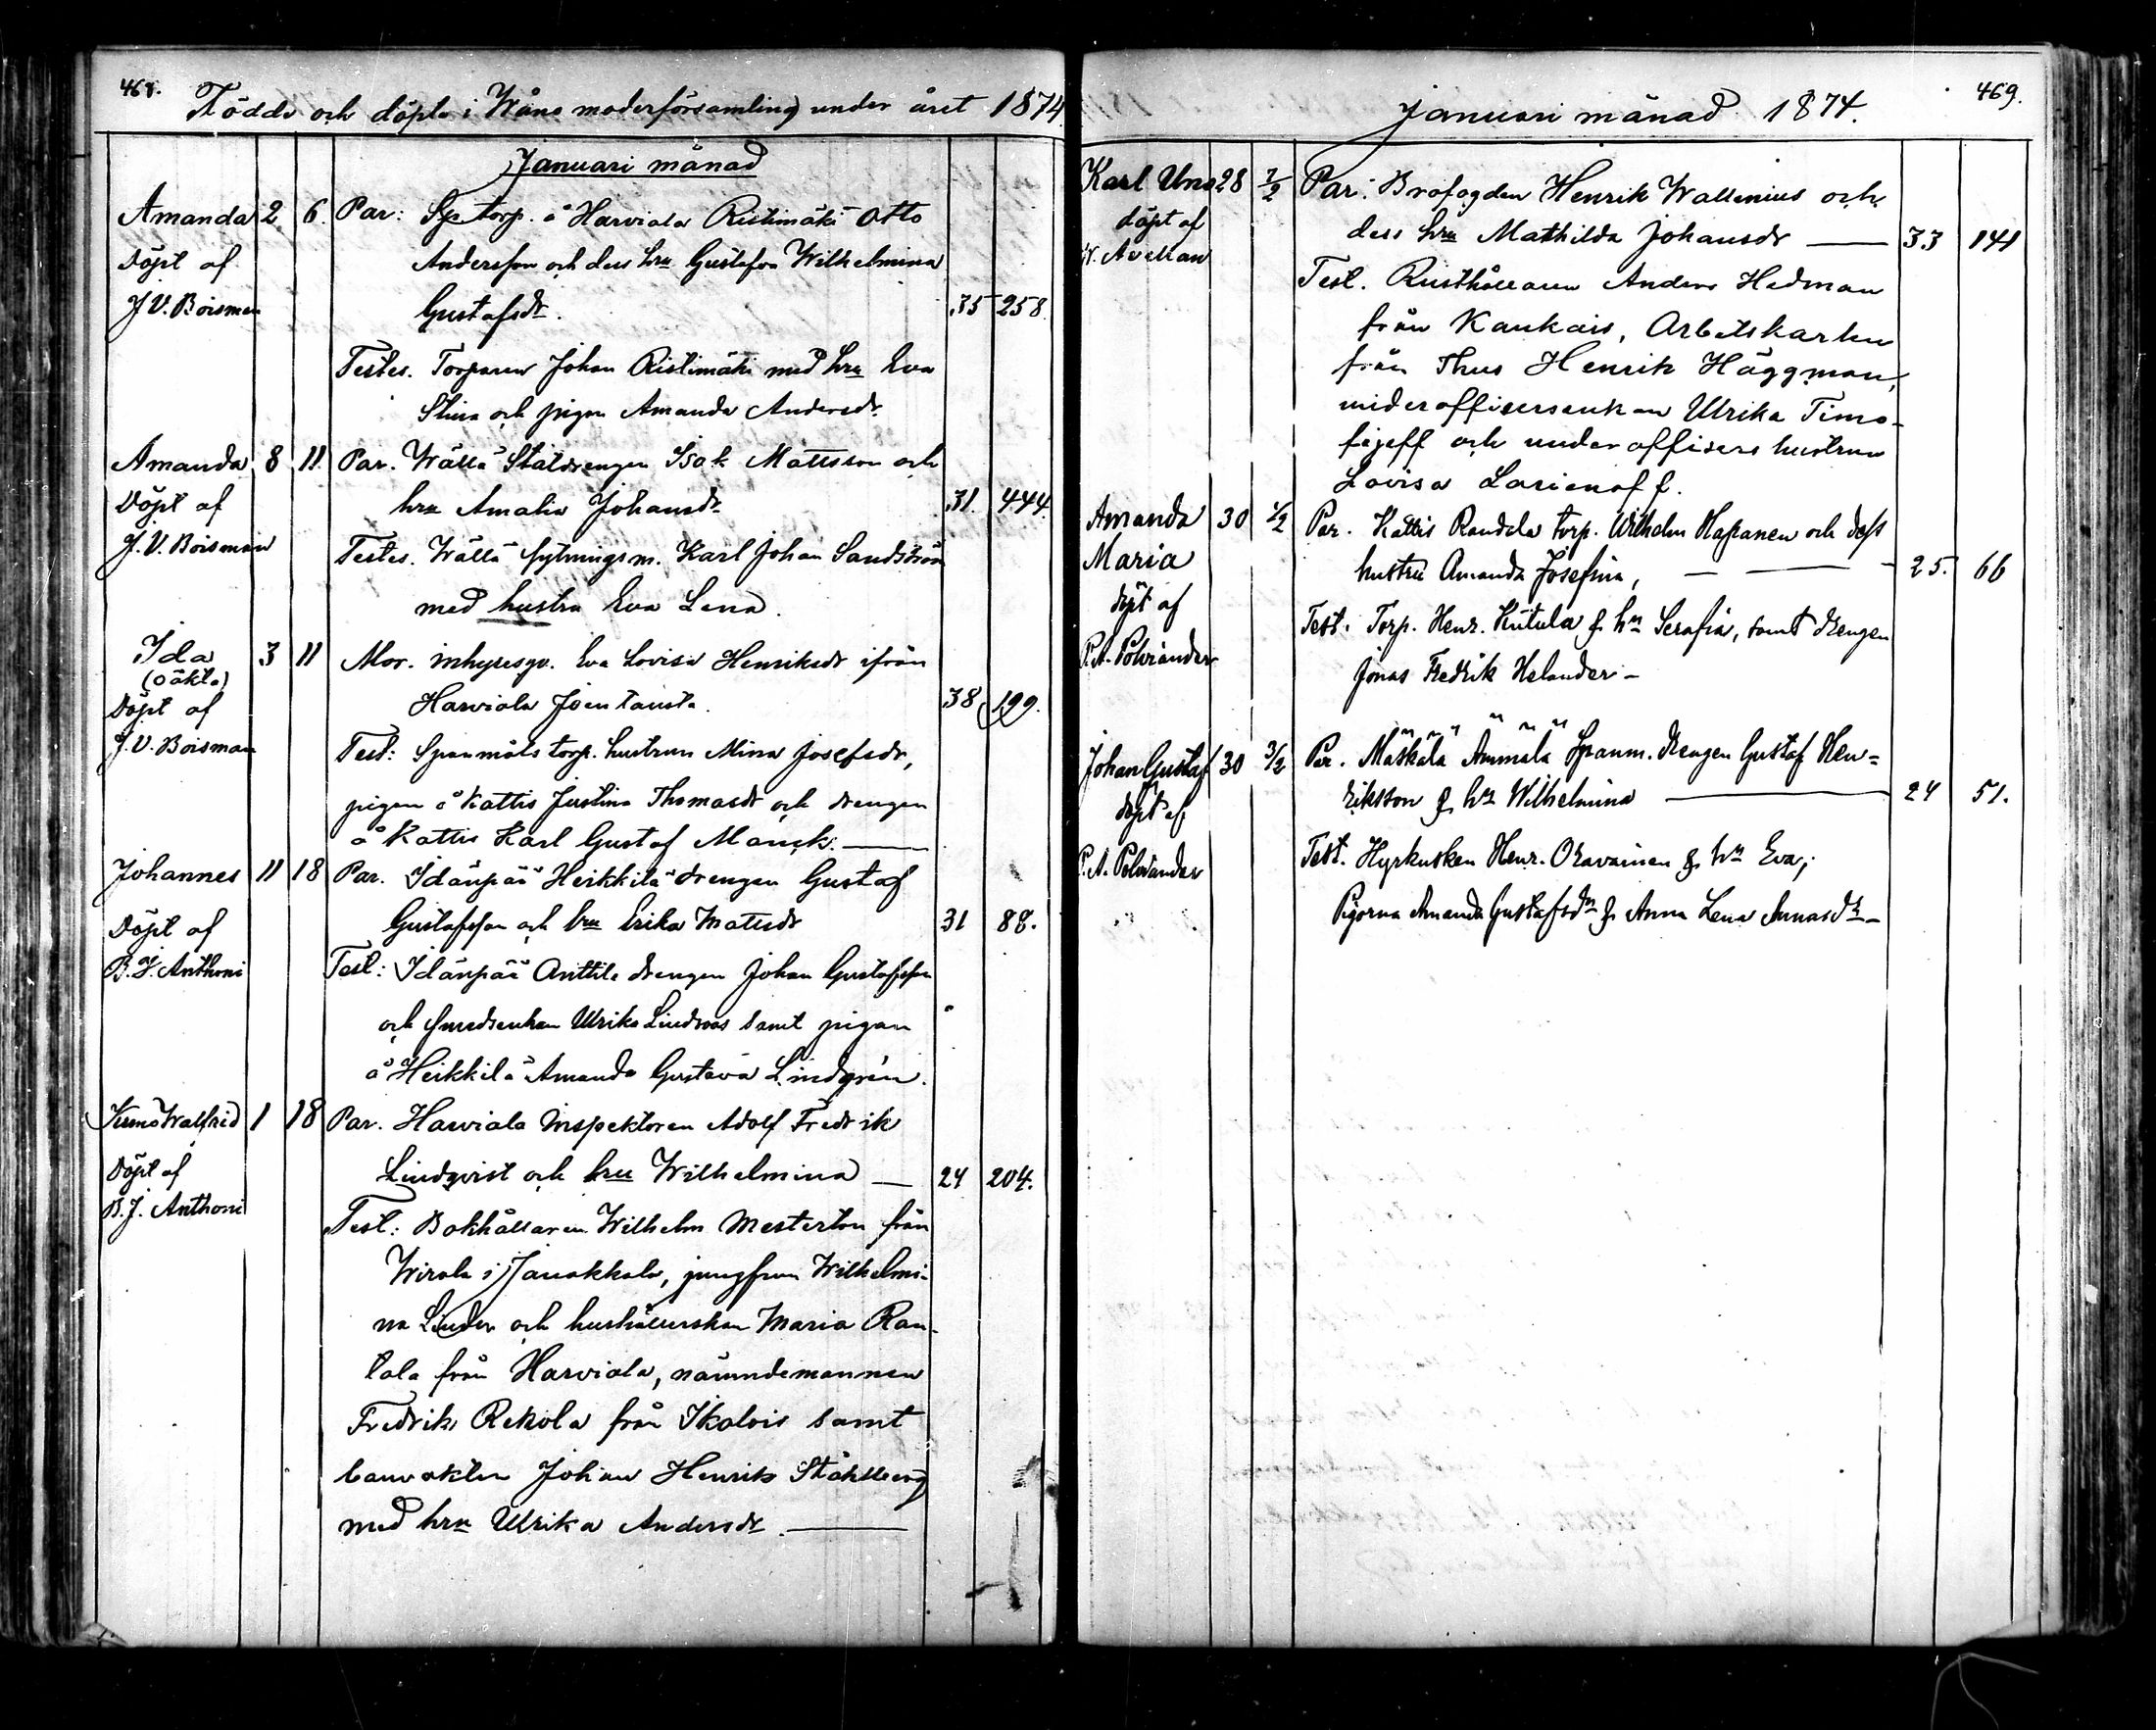 468.
Födde och döpte i Wånå moderförsamling under året 1874
Januari månad
Amanda 2 6. Par: Sp torp. å Harviala Ristimäki Otto
Döpt af Andersson och dess hru Gustafva Wilhelmina
J. V. Boisman Gustafsdr. 35 258.
Testes. Torparen Johan Ristimäki med hru Eva
Stina och pigan Amanda Andersdr.
Amanda 8 11. Par. Wällä Staldrengen Isak Mattsson och
Döpt af hru Amalia Johansdr 31. 444.
J. V. Boisman Testes. Wällä sytningsm. Karl Johan Sandström
med hustru Eva Lena.
Ida 3 11 Mor. inhysesqv. Eva Lovisa Henriksdr ifrån
(oäkta)
Döpt af Harviala Joentausta. 38 199.
J. V. Boisman Test: Spanmåls torp. hustrun Mina Josefsdr,
pigan å Kattis Justina Thomasdr och drengen
å Kattis Karl Gustaf Manck.
Johannes 11 18 Par. Idänpää Heikkilä drengen Gustaf
Döpt af Gustafsson och hru Erika Mattsdr 31 88.
B. J. Anthoni Test: Idänpää Anttila drengen Johan Gustafsson
och smedsenkan Ulrika Lindroos samt pigan
å Heikkilä Amanda Gustava Lindgrén.
Walfrid 1 18 Par. Harviala inspektoren Adolf Fredrik
Döpt af Lindqvist och hru Wilhelmina 24 204.
B. J. Anthoni Test: Bokhållaren Wilhelm Mesterton från
Wirala i Janakkala, jungfrun Wilhelmi-
na Linder och hushållerskan Maria Ran-
tala från Harviala, nämndemannen
Fredrik Rekola från Ikalois samt
banvakten Johan Henrik Ståhlberg
med hru Ulrika Andersdr.
469.
Januari månad 1874.
Karl Uno 28 7/2 Par: Brofogden Henrik Wallenius och
döpt af dess hru Mathilda Johansdr 33 141
W. Avellan Test. Rusthållaren Anders Hedman
från Kankais, Arbetskarlen
från Thus Henrik Häggman,
underofficersenkan Ulrika Timo-
fejeff och underofficers hustrun
Lovisa Larionoff.
Amanda 30 1/2 Par. Kattis Raudda torp. Wilhelm Hapanen och dess
Maria hustru Amanda Josefina, 25. 66
döpt af Test. Torp. Henr. Kutula & hu Serafia, samt drengen
P. A. Polviander Jonas Fredrik Helander –
Johan Gustaf 30 3/2 Par. Mäskälä Ämmälä Spanm. drengen Gustaf Hen=
döpt af riksson & hu Wilhelmina 24 51.
P. A. Polviander Test. Hyrkusken Henr. Oravainen & hu Eva;
Pigorna Amanda Gustafsdr & Anna Lena